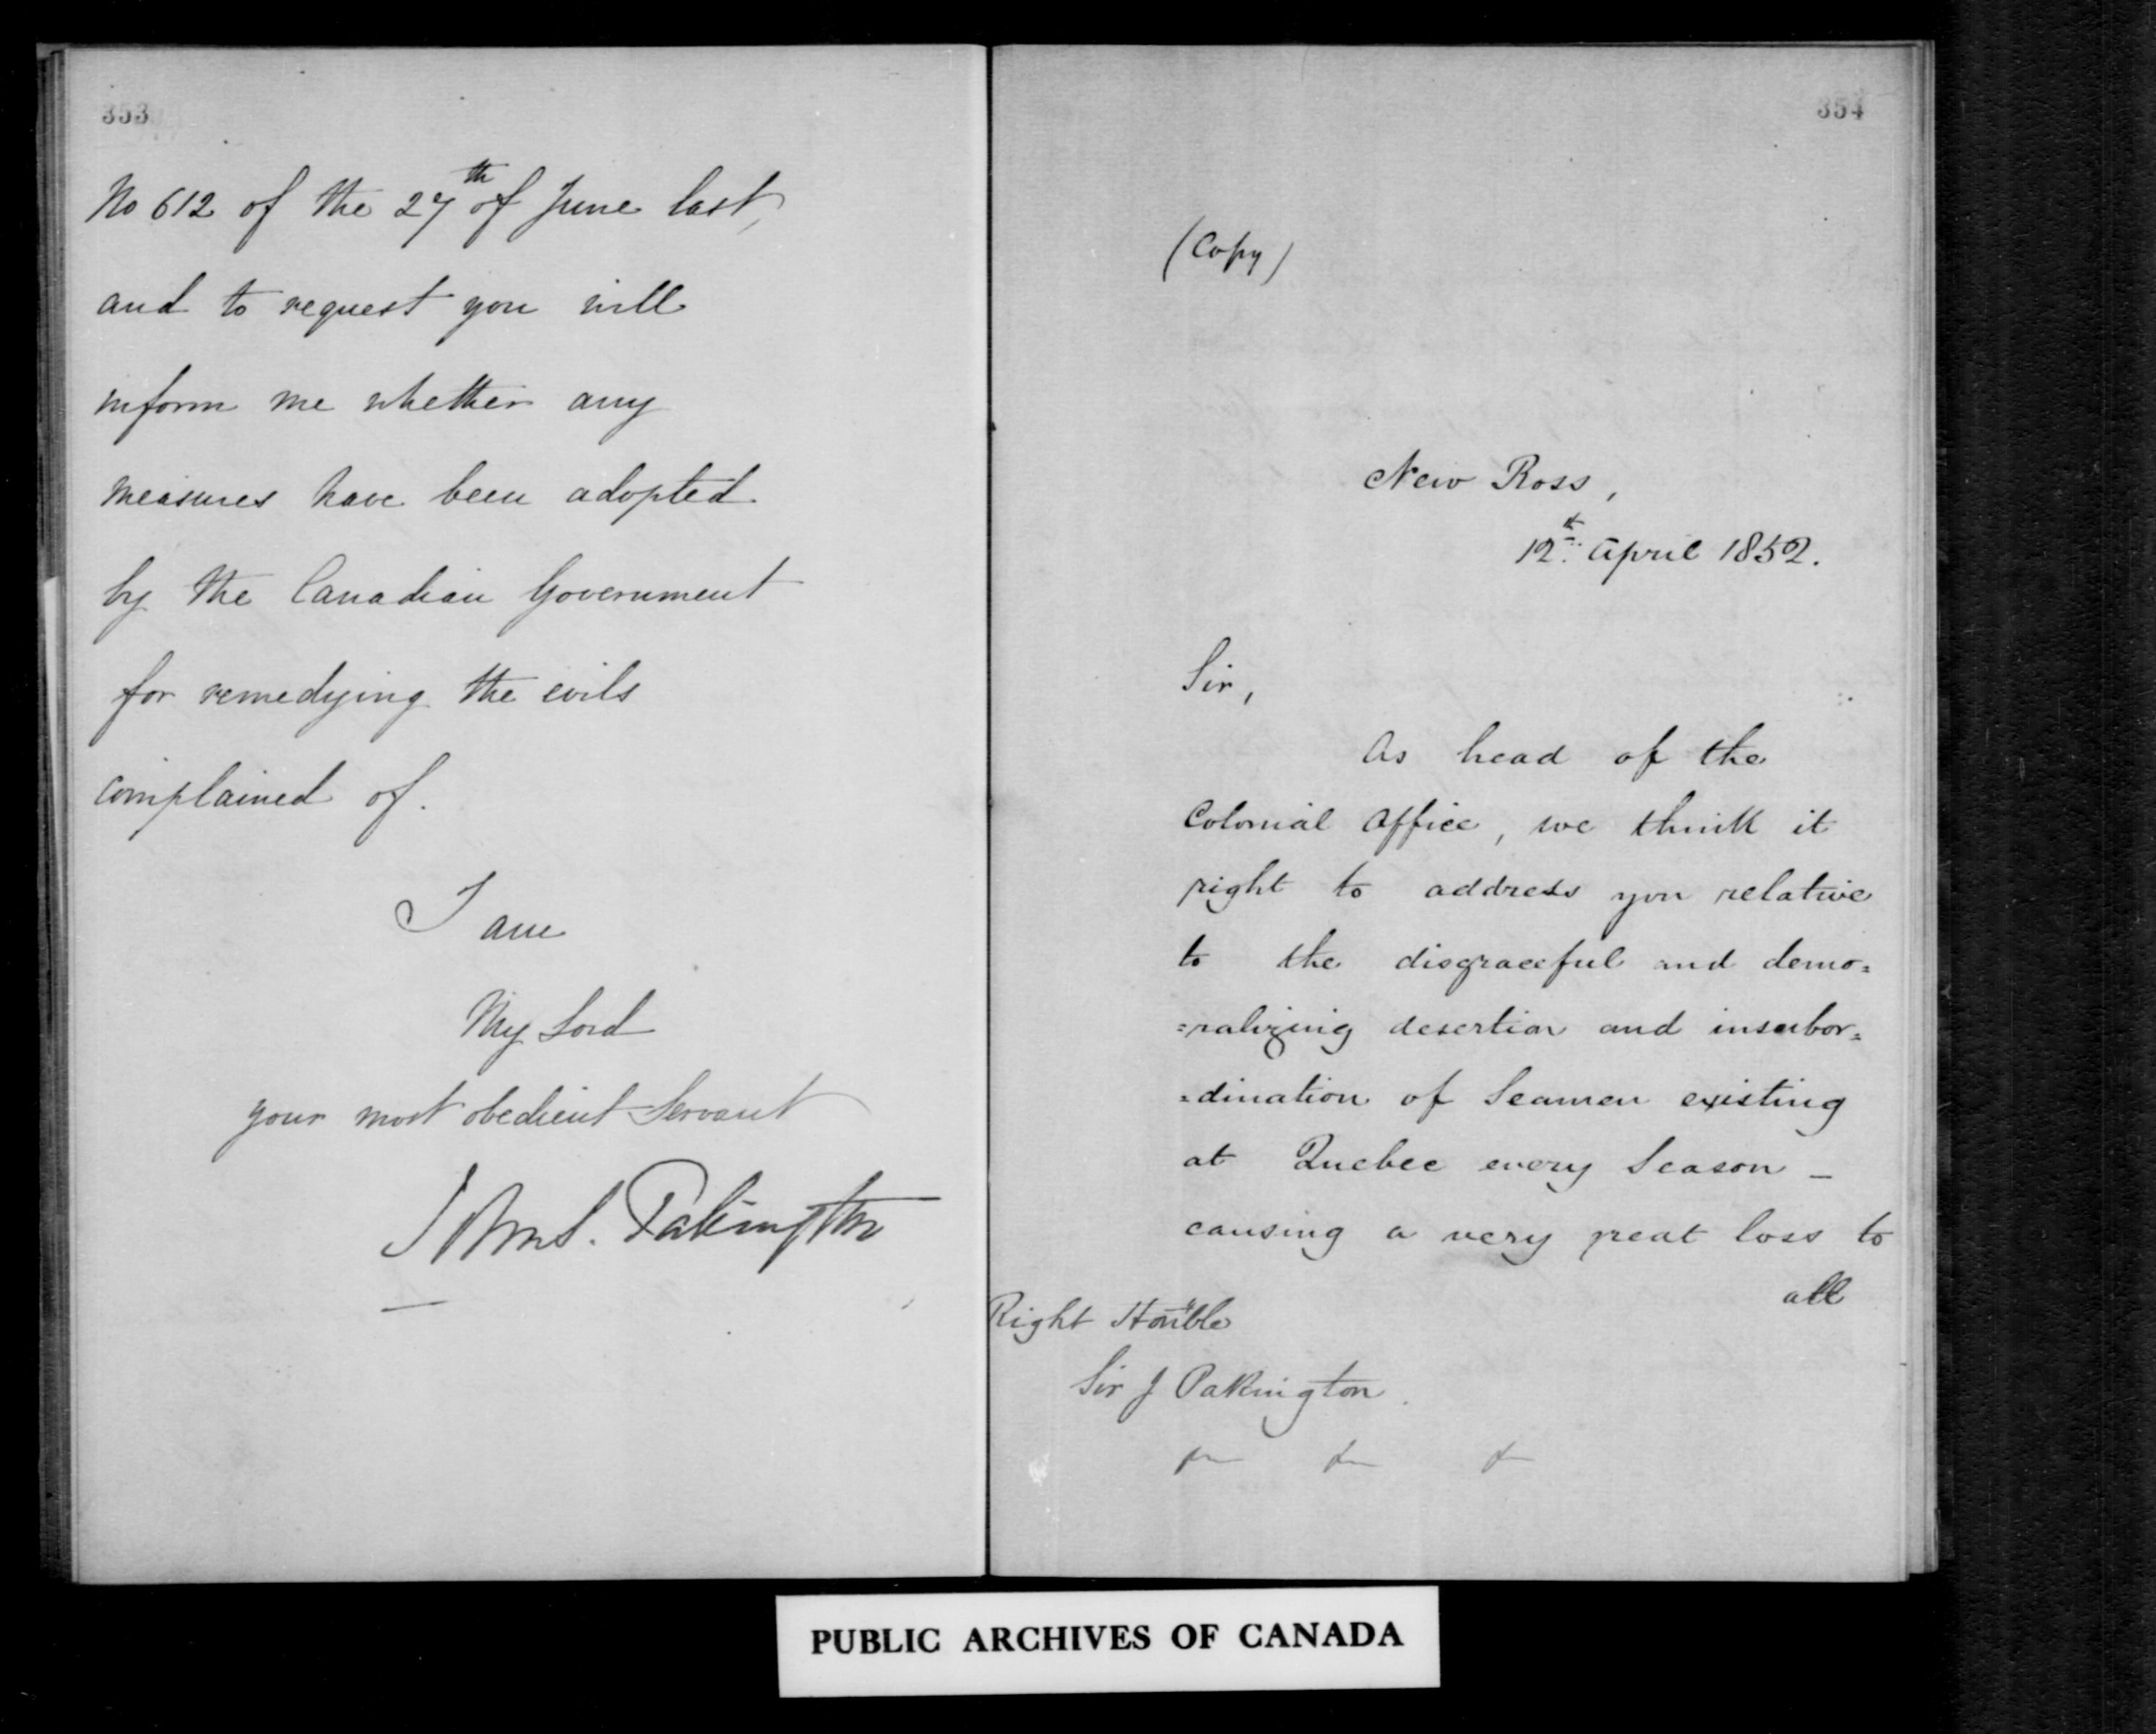 353
No 612 of the 27th of June last,
and to request you will
inform me whether any
measures have been adopted
by the Canadian Government
for remedying the evils
complained of.
I am
My Lord
your most obedient Servant
John S. Pakington
354
(Copy)
New Ross,
12th April 1852.
Sir,
As head of the
Colonial Office, we think it
right to address you relative
to the disgraceful and demo=
=ralizing desertion and insubor=
=dination of Seamen existing
at Quebec every Season _
causing a very great loss to
all
Right Honble
Sir J Pakington.
PUBLIC ARCHIVES OF CANADA